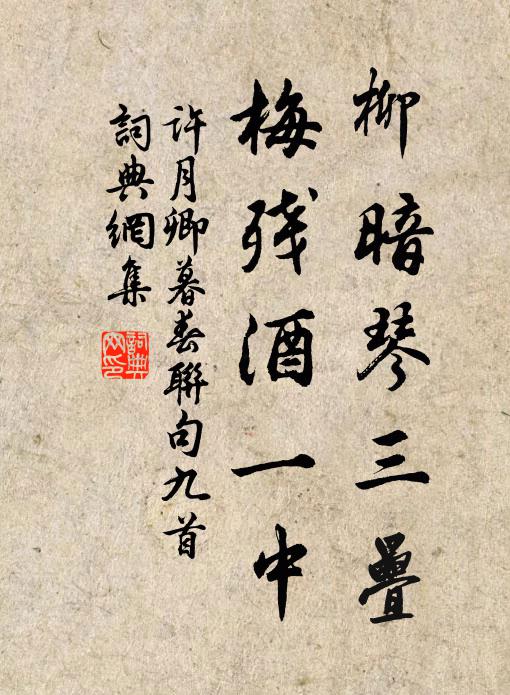 柳暗琴三疊
梅残酒一中
許月卿暮春聯句九首
詞典網集
詞典网印